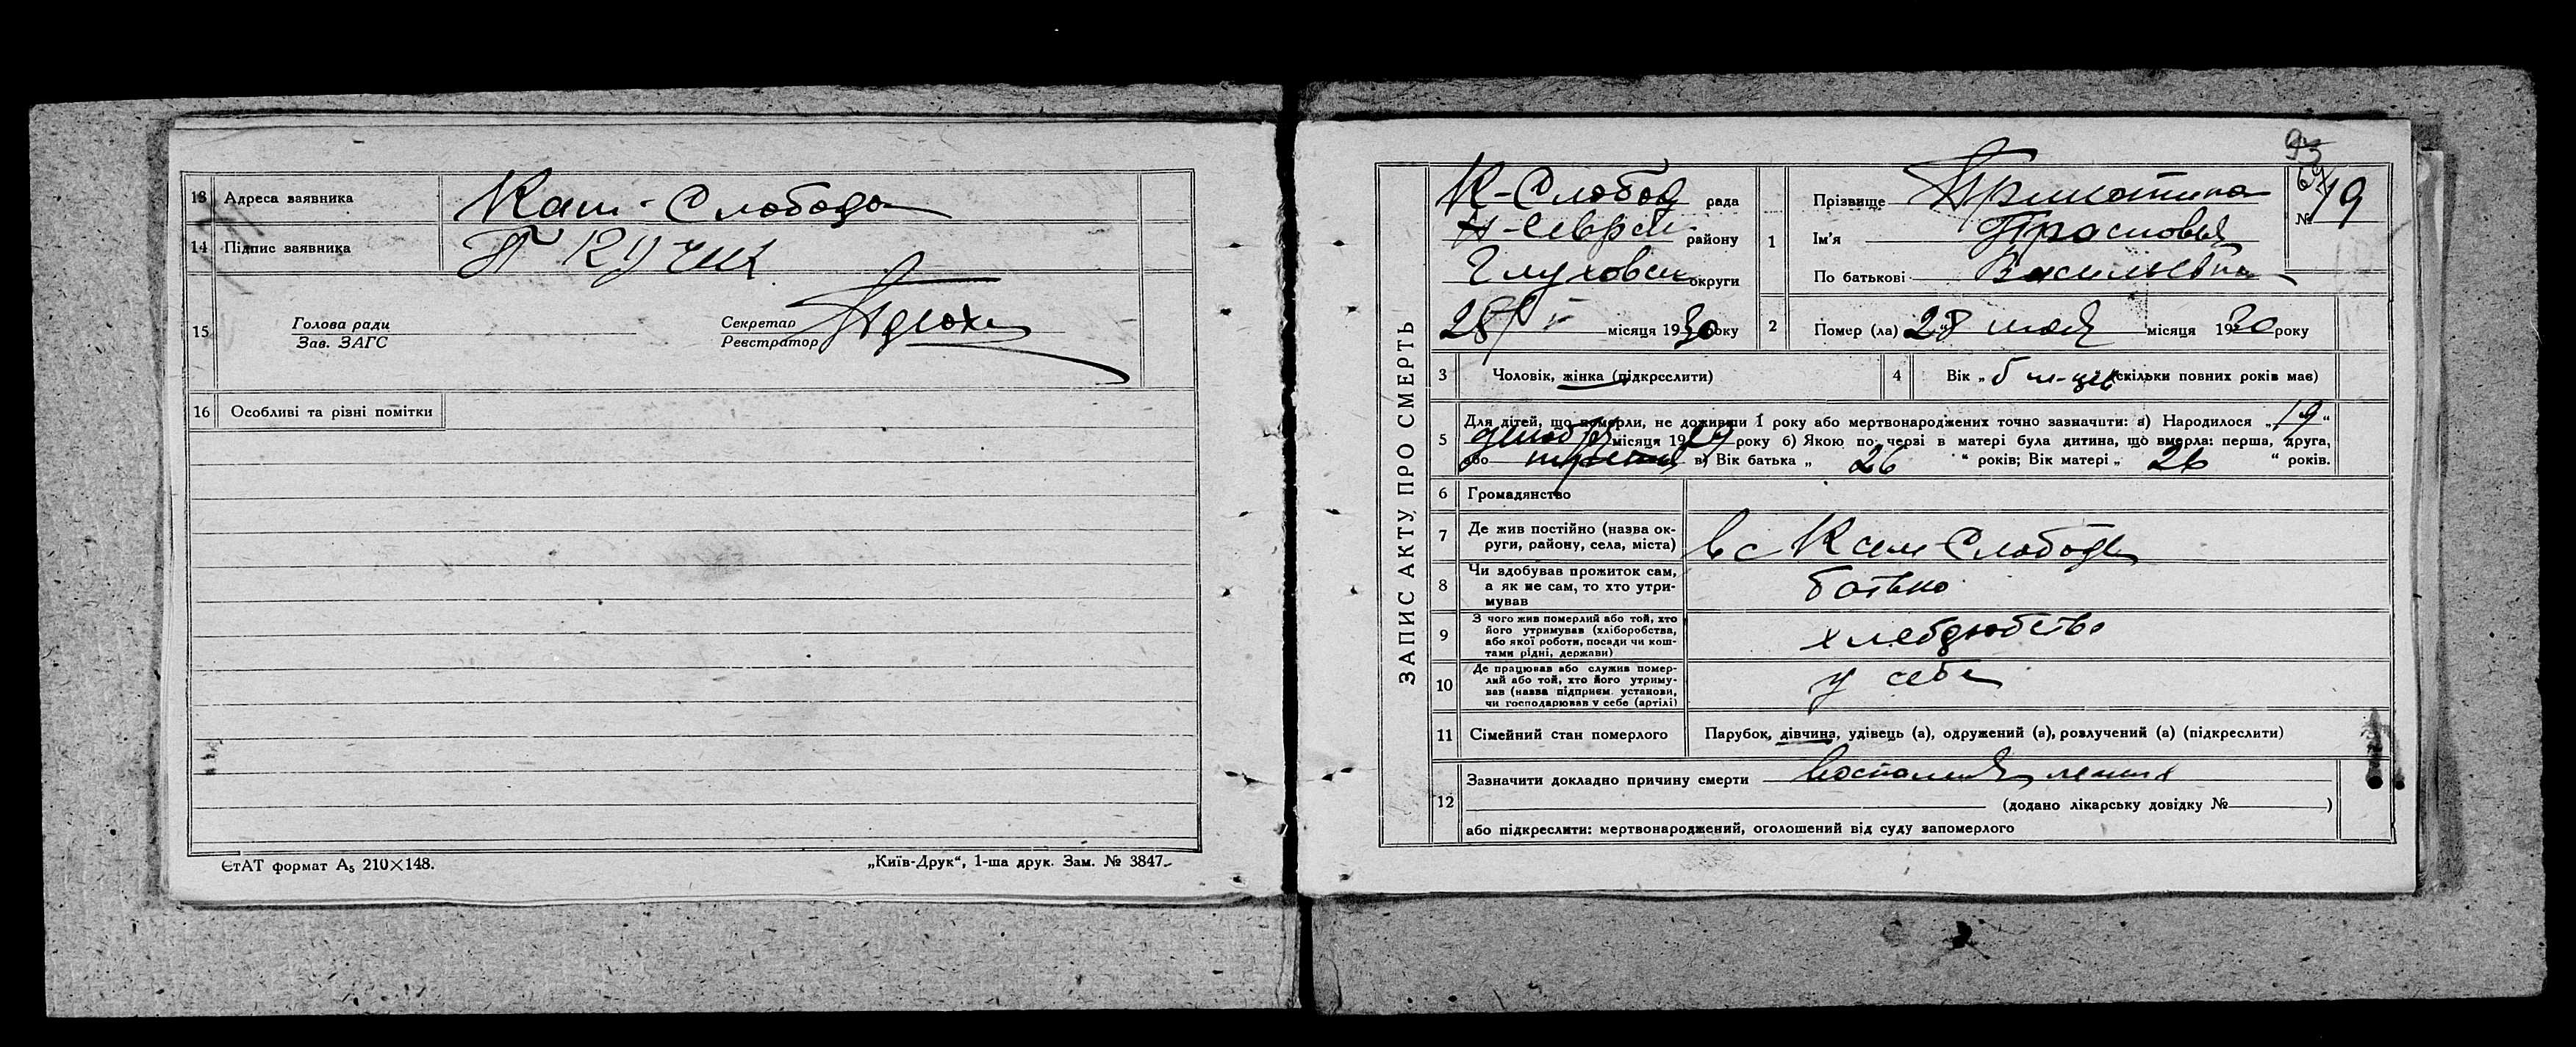 13 Адреса заявника Кам-Слобода
14 Підпис заявника
15 Голова ради
Зав. ЗАГС
Секретар
Реєстратор
16 Особливі та різні помітки
ЄтАТ формат А₅ 210×148.
„Київ-Друк“, 1-ша друк. Зам. № 3847
93
69
№ 19
ЗАПИС АКТУ ПРО СМЕРТЬ
К-Слобод рада
Н-Севрск району
Глуховск округи
28/V місяця 1930 року
1 Прізвище
Ім'я Прасковья
По батькові Васильевна
2 Помер (ла) „28 мая місяця 1930 року
3 Чоловік, жінка (підкреслити)
4 Вік „5 м-цев (скільки повних років має)
5 Для дітей, що померли, не доживши 1 року або мертвонароджених точно зазначити: а) Народилося „19“
декабря місяця 1929 року б) Якою по черзі в матері була дитина, що вмерла: перша, друга,
або третья в) Вік батька „ 26 “ років; Вік матері „ 26 “ років.
6 Громадянство
7 Де жив постійно (назва ок-
руги, району, села, міста) в с Кам Слободе
8 Чи здобував прожиток сам,
а як не сам, то хто утри-
мував батько
9 З чого жив померлий або той, хто
його утримував (хліборобства,
або якої роботи, посади чи кош-
тами рідні, держави)
10 Де працював або служив помер-
лий або той, хто його утриму-
вав (назва підприєм. установи,
чи господарював у себе (артілі) у себе
11 Сімейний стан померлого Парубок, дівчина, удівець (а), одружений (а), розлучений (а) (підкреслити)
12 Зазначити докладно причину смерти
(додано лікарську довідку № )
або підкреслити: мертвонароджений, оголошений від суду запомерлого